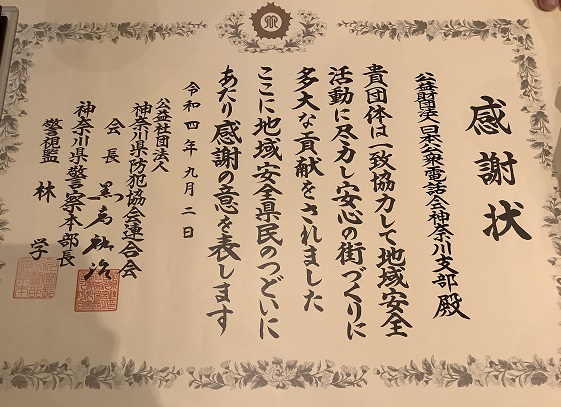 感謝状
公益財団法人日本公衆電話会神奈川支部殿
貴団体は一致協力して地域安全
活動に尽力し安心の街づくりに
多大な貢献をされました
ここに地域安全県民のつどいに
あたり感謝の意を表します
令和四年九月二日
公益社団法人
神奈川県防犯協会連合会
会長
神奈川県警察本部長
警視監 林 学